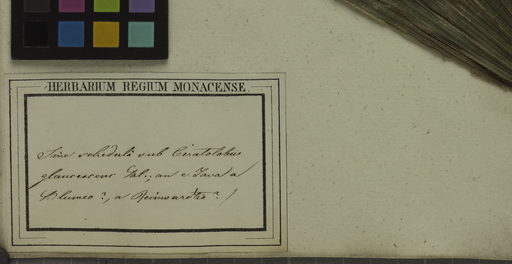 HERBARIUM REGIUM MONACENSE.
Sine schedula sub Ceratolobus
glaucescens Bl.; an e Java a
Blumeo?, a Reinwardtio?)